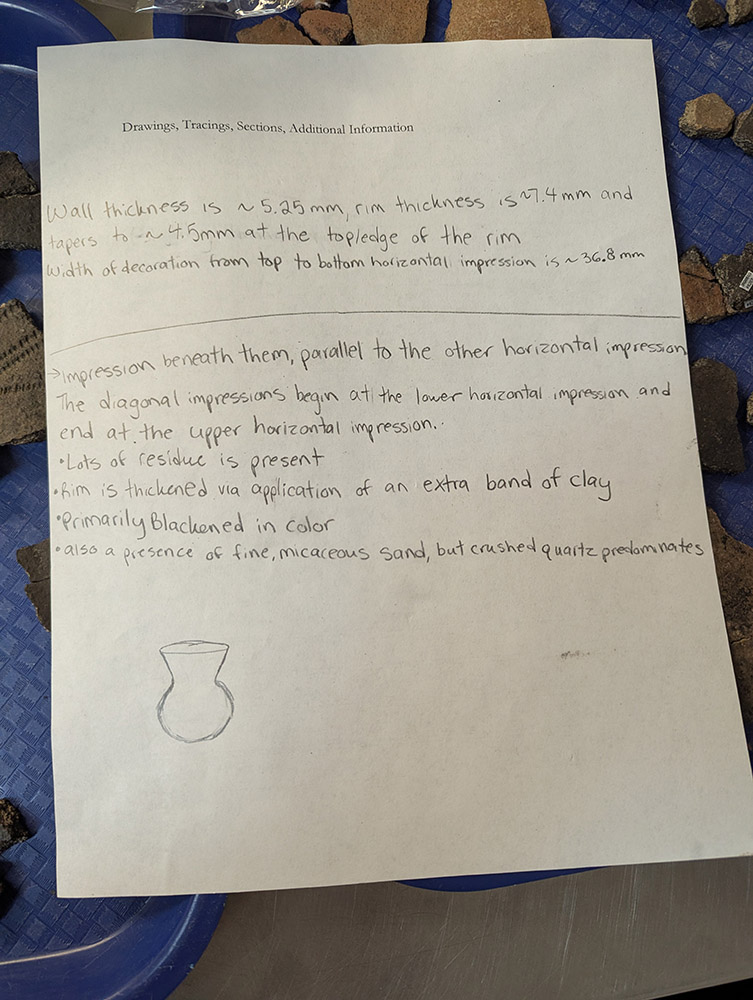 Drawings, Tracings, Sections, Additional Information
Wall thickness is ~ 5.25 mm, rim thickness is ~7.4 mm and
tapers to ~ 4.5mm at the top/edge of the rim
Width of decoration from top to bottom horizontal impression is ~ 36.8 mm
→impression beneath them, parallel to the other horizontal impression
The diagonal impressions begin at the lower horizontal impression and
end at the upper horizontal impression.
•Lots of residue is present
•Rim is thickened via application of an extra band of clay
•Primarily Blackened in color
•also a presence of fine, micaceous sand, but crushed quartz predominates